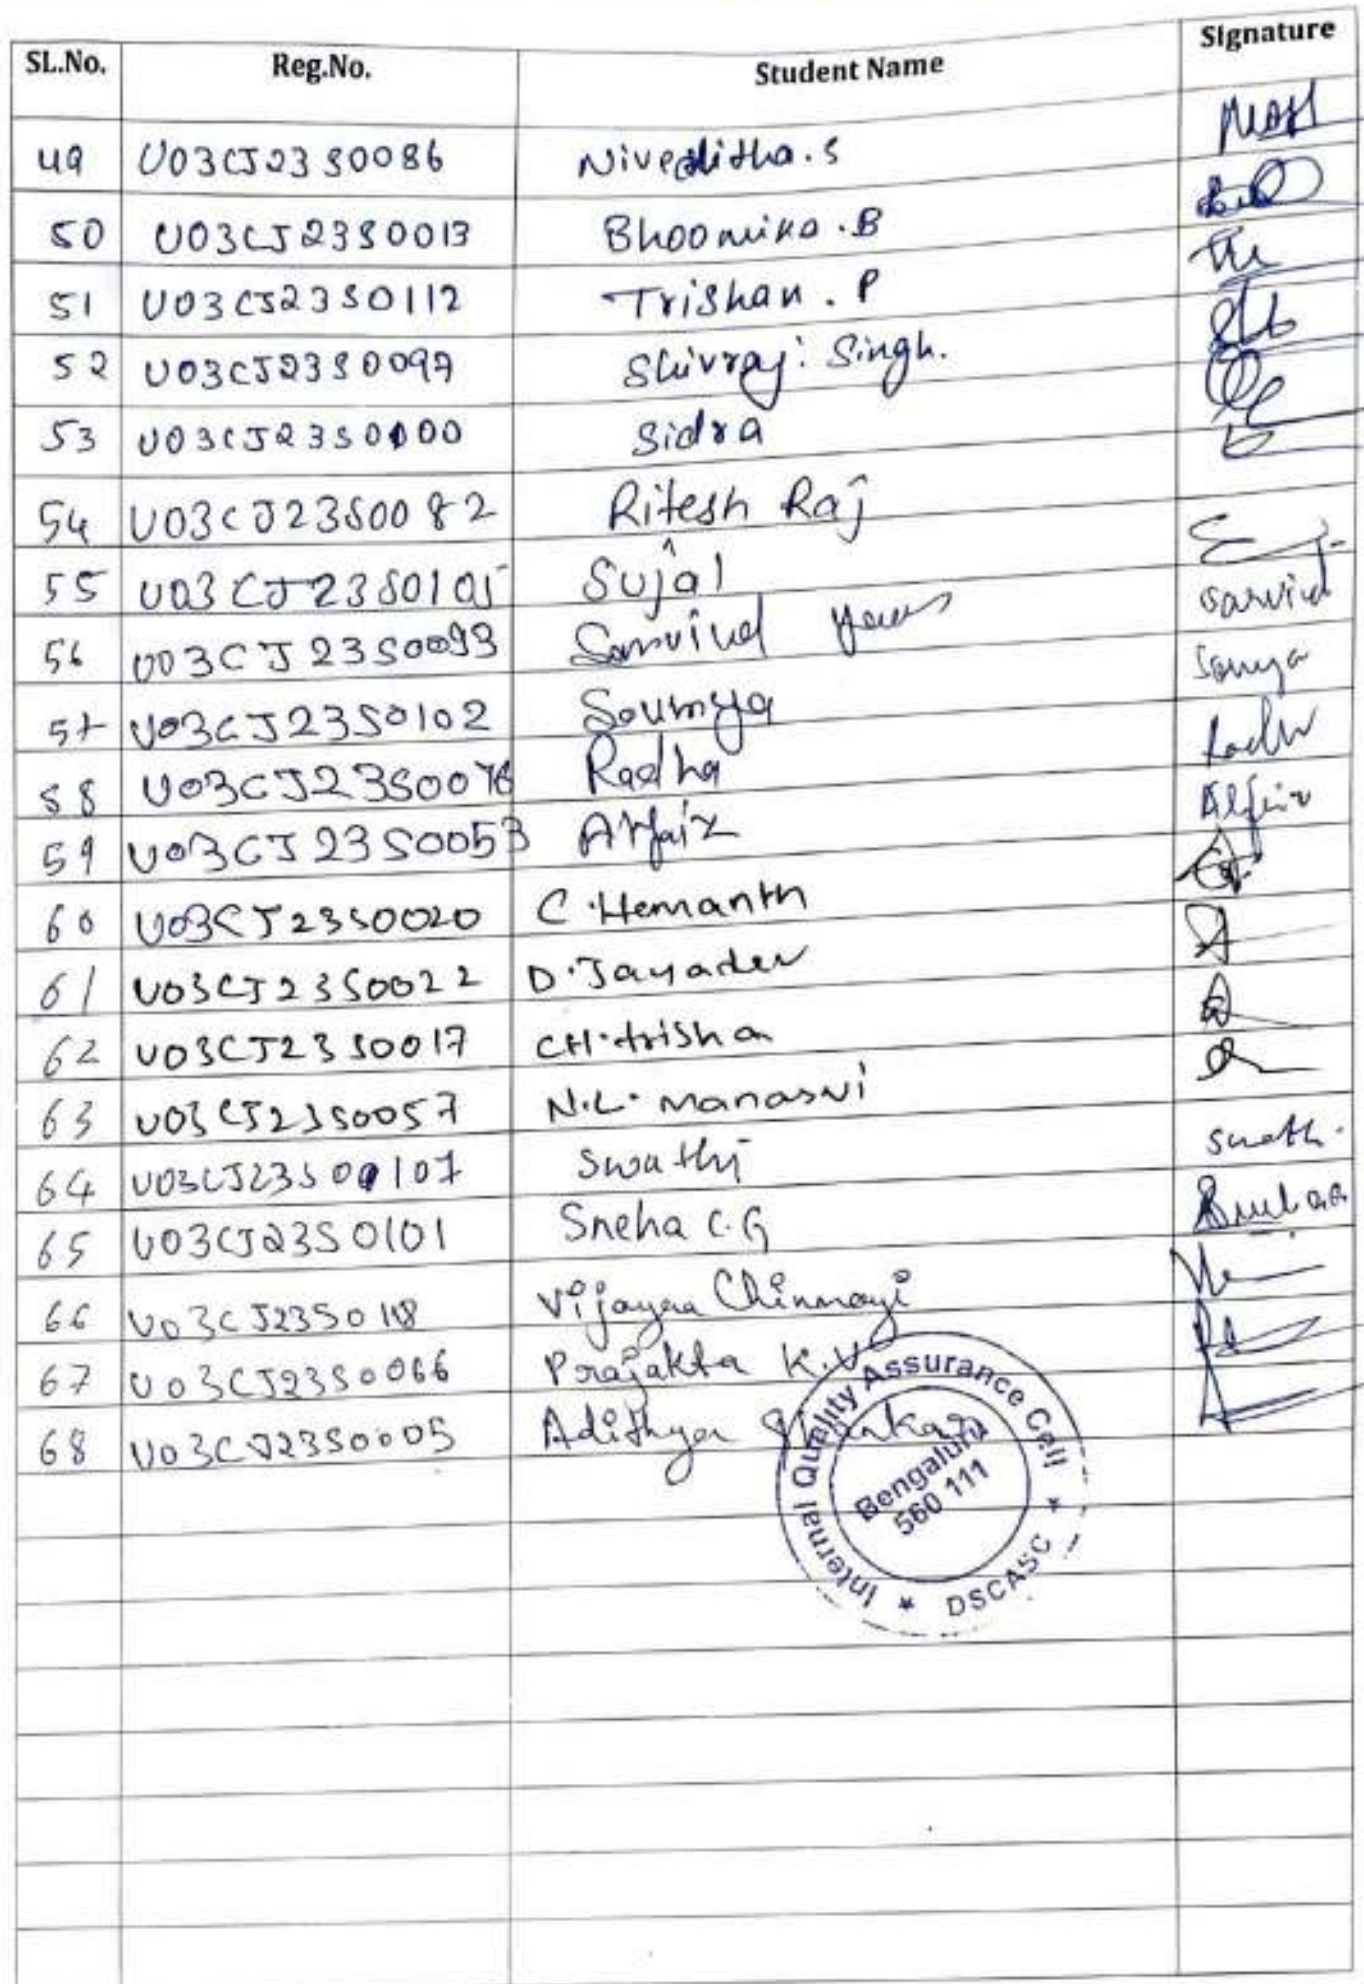 SL.No. Reg.No. Student Name Signature
49 U03CJ23S0086 Niveditha.S
50 U03CJ23S0013 Bhoomika.B
51 U03CJ23S0112 Trishan.P
52 U03CJ23S0097 Shivraj Singh.
53 U03CJ23S0100 Sidra
54 U03CJ23S0082 Ritesh Raj
55 U03CJ23S0105 Sujal
56 U03CJ23S0093 Sarvind
57 U03CJ23S0102 Soumya
58 U03CJ23S0076 Radha
59 U03CJ23S0053
60 U03CJ23S0020 C.Hemanth
61 U03CJ23S0022 D.Jayadev
62 U03CJ23S0017 CH.trisha
63 U03CJ23S0057 N.L. manasvi
64 U03CJ23S0107 Swathi
65 U03CJ23S0101 Sneha C.G
66 U03CJ23S0118 Vijayaa Chinmayi
67 U03CJ23S0066 Prajakta K.V
68 U03CJ23S0005 Adithya
Internal Quality Assurance Cell
Bengaluru
560 111
* DSCASC *